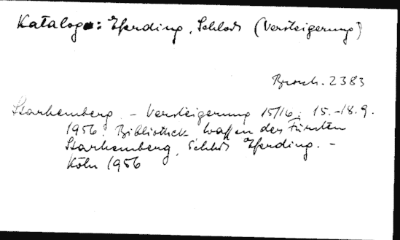 Kataloge: Eferding, Schloß (Versteigerung)
Brosch. 2383
Starhemberg. - Versteigerung 15/16: 15.-18.9.
1956: Bibliothek, Waffen des Fürsten
Starhemberg, Schloß Eferding. -
Köln 1956